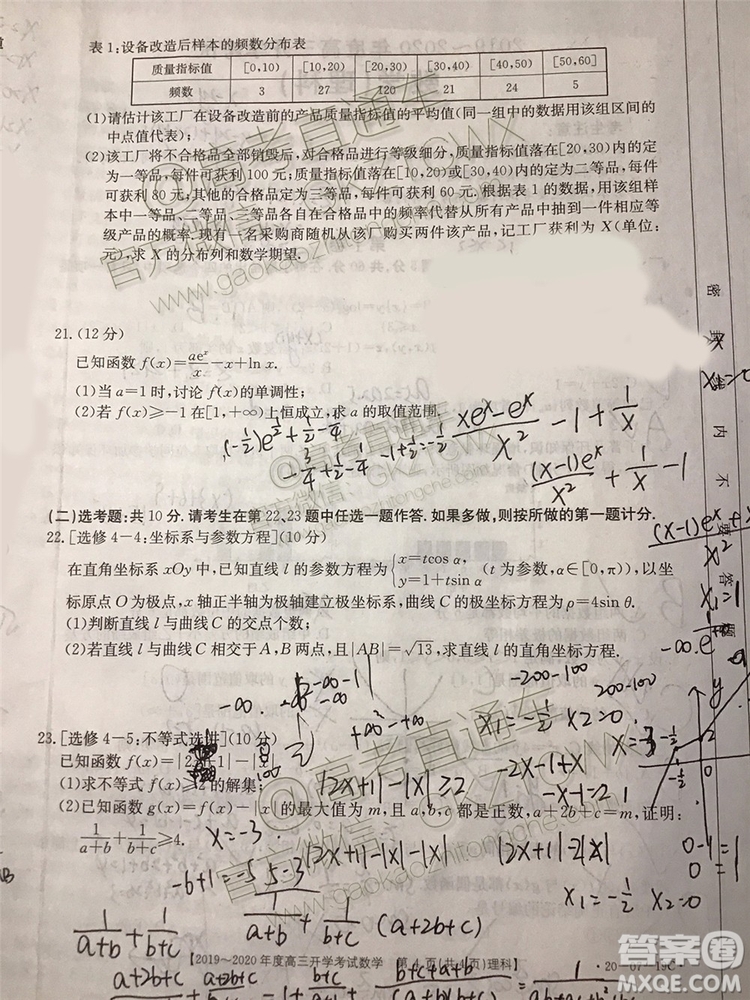 表1:设备改造后样本的频数分布表
质量指标值 [0,10) [10,20) [20,30) [30,40) [40,50) [50,60]
频数 3 27 120 21 24 5
(1)请估计该工厂在设备改造前的产品质量指标值的平均值(同一组中的数据用该组区间的
中点值代表);
(2)该工厂将不合格品全部销毁后,对合格品进行等级细分,质量指标值落在[20,30)内的定
为一等品,每件可获利100元;质量指标值落在[10,20)或[30,40)内的定为二等品,每件
可获利80元;其他的合格品定为三等品,每件可获利60元.根据表1的数据,用该组样
本中一等品、二等品、三等品各自在合格品中的频率代替从所有产品中抽到一件相应等
级产品的概率.现有一名采购商随机从该厂购买两件该产品,记工厂获利为X(单位:
元),求X的分布列和数学期望.
21.(12分)
已知函数f(x)=ae^x/x-x+ln x.
(1)当a=1时,讨论f(x)的单调性;
(2)若f(x)≥-1在[1,+∞)上恒成立,求a的取值范围.
(-1/2)e^(1/2)+1/2-1/4
(xe^x-e^x)/x²-1+1/x
-3/4+1/2-1/4 -1+1/2=-1/2
(x-1)e^x/x²+1/x-1
(二)选考题:共10分.请考生在第22、23题中任选一题作答.如果多做,则按所做的第一题计分.
22.[选修4-4:坐标系与参数方程](10分)
在直角坐标系xOy中,已知直线l的参数方程为{x=tcos α, y=1+tsin α (t为参数,α∈[0,π)),以坐
标原点O为极点,x轴正半轴为极轴建立极坐标系,曲线C的极坐标方程为ρ=4sin θ.
(1)判断直线l与曲线C的交点个数;
(2)若直线l与曲线C相交于A,B两点,且|AB|=√13,求直线l的直角坐标方程.
-200-100
200-100
x₁=-1/2 x₂=0
23.[选修4-5:不等式选讲](10分)
已知函数f(x)=|2x+1|-|x|
(1)求不等式f(x)≥2的解集;
|2x+1|-|x|≥2
-2x-1+x
-x-1=2
(2)若函数g(x)=f(x)-|x|的最大值为m,且a,b,c都是正数,a+2b+c=m,证明:
1/(a+b)+1/(b+c)≥4.
x=-3
-6+1=-5 5-3
|2x+1|-|x|-|x|
|2x+1|-2|x|
x₁=-1/2 x₂=0
1/(a+b)+1/(b+c)
1/(a+b)+1/(b+c) (a+2b+c)
【2019~2020年度高三开学考试数学 第4页(共4页)理科】 ·20-07-19C·
密
封
内
不
答
题
@高考直通车
官方微信:GKZTCWX
www.gaokaozhitongche.com
答案圈
MXQE.COM